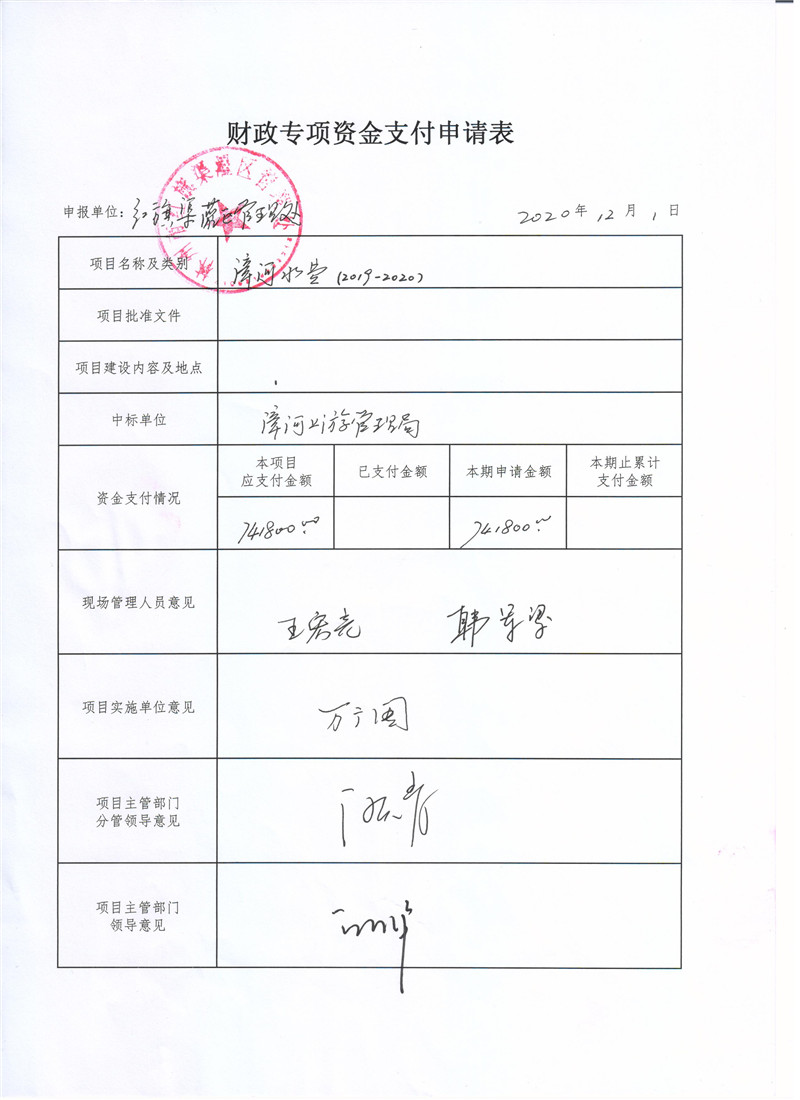 财政专项资金支付申请表
申报单位：红旗渠灌区管理处
2020年12月1日
项目名称及类别 漳河水费（2019-2020）
项目批准文件
项目建设内容及地点
中标单位 漳河上游管理局
资金支付情况
本项目 应支付金额 已支付金额 本期申请金额 本期止累计 支付金额
741800.00 741800.00
现场管理人员意见 王宏亮 韩军梁
项目实施单位意见 万广周
项目主管部门
分管领导意见
项目主管部门
领导意见